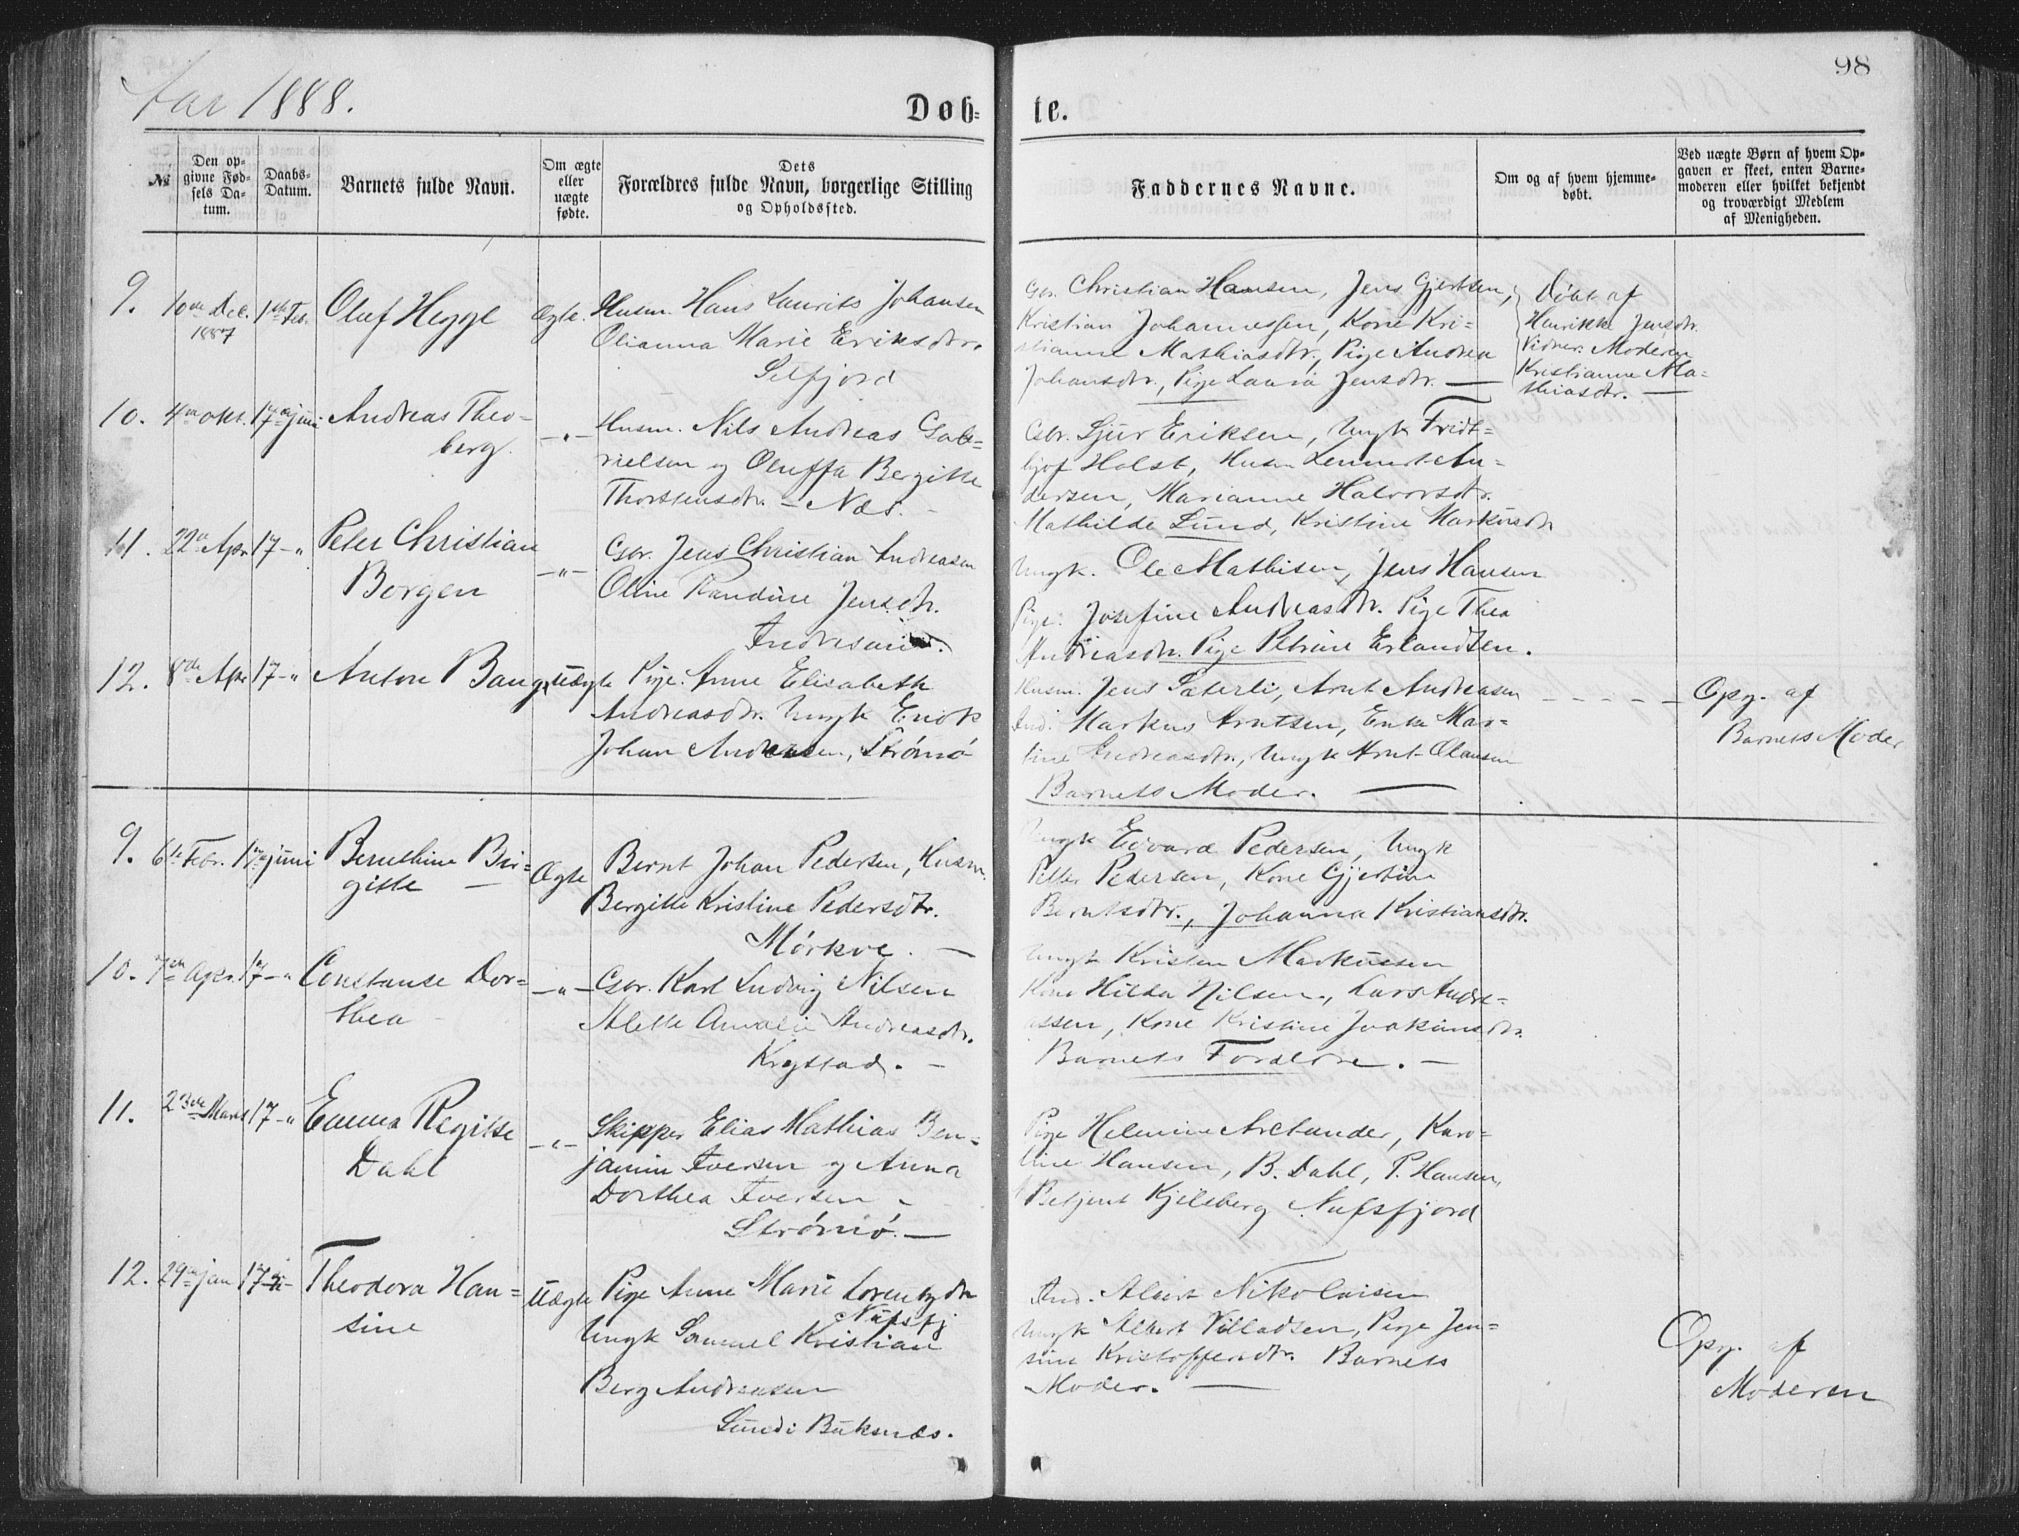 Aar 1888.
98
Døb-
te.
№
Den op-
givne Fød-
sels Da-
tum.
Daabs-
Datum.
Barnets fulde Navn.
Om ægte
eller
uægte
fødte.
Dets
Forældres fulde Navn, borgerlige Stilling
og Opholdssted.
Faddernes Navne.
Om og af hvem hjemme-
døbt.
Ved uægte Børn af hvem Op-
gaven er skeet, enten Barne-
moderen eller hvilket bekjendt
og troværdigt Medlem
af Menigheden.
9. 10de Dec. 1887 1ste Feb. Oluf Hegge Ægte.
Husm. Hans Laurits Johansen
Olianna Marie Eriksdtr.
Selfjord
Gbr. Christian Hansen, Jens Gjertsen,
Kristian Johannessen, Kone Kri-
stianne Mathiasdtr., Pige Andrea
Johansdtr., Pige Laura Jensdtr. —
Døbt af
Henrikke Jensdtr.
Vidner: Moderen
Kristianne Ma-
thiasdtr. —
10. 4de Okt. 17de juni Andreas Theo-
berg. —"—
Husm. Nils Andreas Gab-
rielsen og Oluffa Bergitte
Thorstensdtr. — Næs. —
Gbr. Sjur Eriksen, Ungk Fridt-
hjof Holst, Husm Lennert An-
dersen, Marianne Halvorsdtr.
Mathilde Lund, Kristine Markusdtr
11. 22de Apr 17 - " Peter Christian
Borgen —"—
Gbr. Jens Christian Andreasen
Oline Randine Jensdtr.
Ungk. Ole Mathisen, Jens Hansen
Pige: Josefine Andreasdtr. Pige Thea
Andreasdtr. Pige Petrine Erlandsen.
12. 8de Apr 17 - " Anton Bang, Uægte
Pige. Anne Elisabeth
Andreasdtr. Ungk Enok
Johan Andersen, Strømø
Husm. Jens Sæterli, Arnt Andreasen
Ind. Markus Arntsen, Enke Mar-
tine Andreasdtr., Ungk Arnt Olausen
Barnets Moder. —
Opg. af
Barnets Moder
9. 6te Febr. 17de juni Bernthine Bir-
gitte — Ægte
Bernt Johan Pedersen, Husm.
Bergitte Kristine Pedersdtr.
Mørkve. —
Ungk Edvard Pedersen, Ungk
Petter Pedersen, Kone Gjertine
Berntsdtr., Johanna Kristiansdtr.
10. 7de Apr. 17 - " Constanse Dor-
thea —"—
Gbr. Karl Ludvig Nilsen
Alette Amalie Andreasdtr.
Krystad. —
Ungk Kristen Markussen
Kone Hilda Nilsen, Lars Andre-
assen, Kone Kristine Joakimsdtr.
Barnets Forældre. —
11. 23de Marts 17 - " Emma Regitse
Dahl —"—
Skipper Elias Mathias Ben-
jamin Iversen og Anna
Dorthea Iversen -
Strømø. —
Pige Helmine Arctander, Karo-
line Hansen, B. Dahl, P. Hansen,
Betjent Kjelsberg Nufsfjord
12. 29de jan 17de - Theodora Han-
sine Uægte
Pige Anne Marie Lorentsdtr
Nufsfj
Ungk Samuel Kristian
Berg Andreasen
Sund i Buksnæs.
Ind. Albert Nikolaisen
Ungk Albert Villadsen, Pige Jen-
sine Kristoffersdtr. Barnets
Moder. —
Opg. af
Moderen